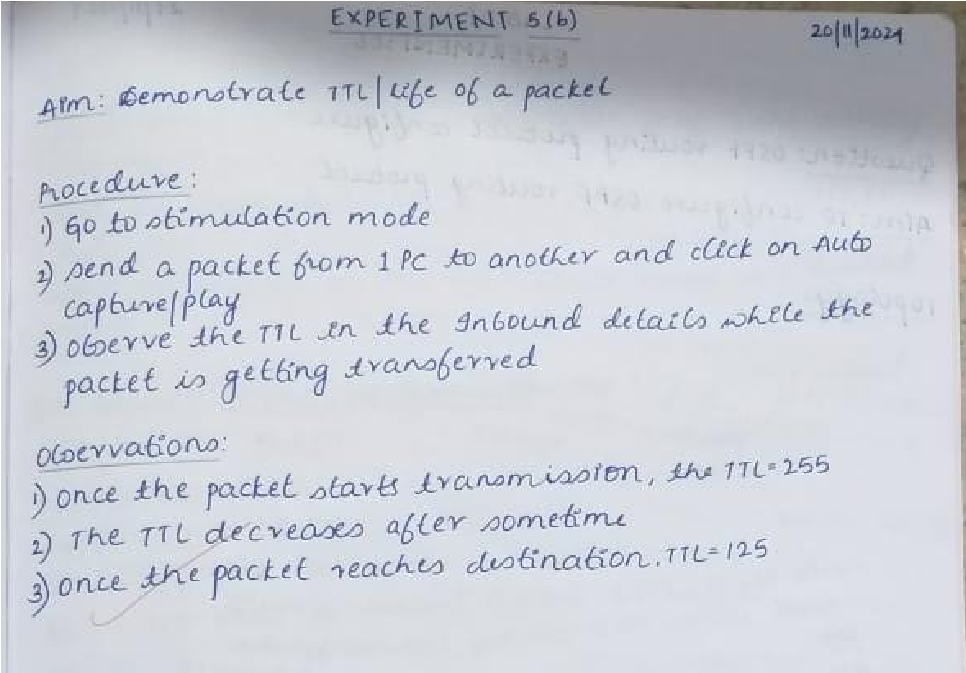 EXPERIMENT 5(b)
20/11/2024
AIM: Demonstrate TTL/life of a packet
Procedure:
1) Go to stimulation mode
2) send a packet from 1 PC to another and click on Auto
capture/play
3) observe the TTL in the Inbound details while the
packet is getting transferred
Observations:
1) once the packet starts transmission, the TTL=255
2) The TTL decreases after sometime
3) once the packet reaches destination. TTL=125